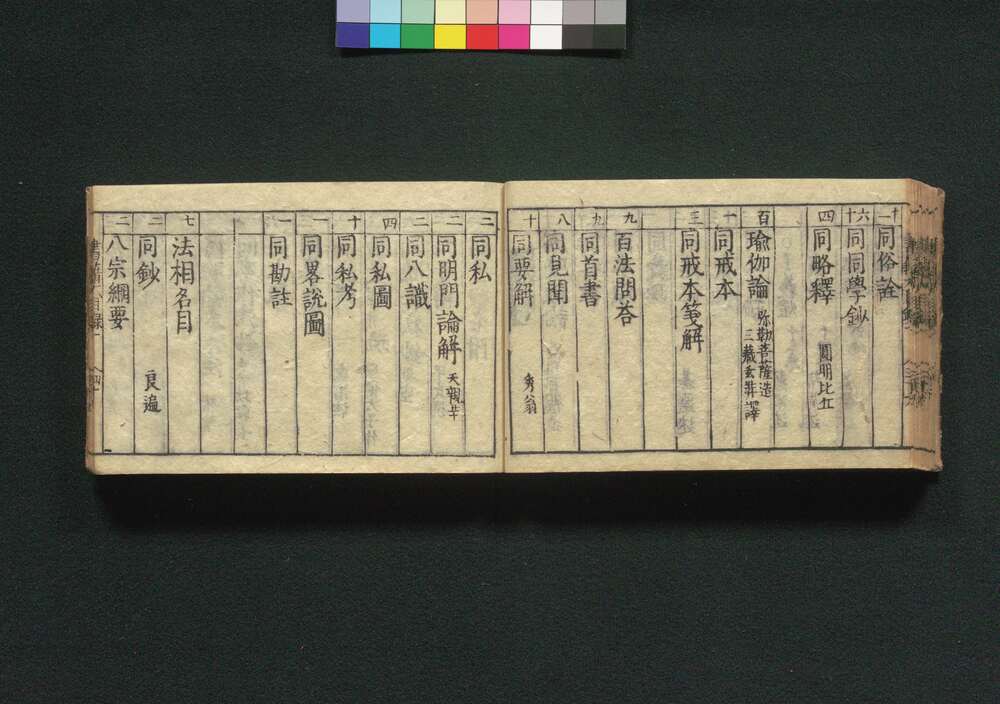 十一 同俗詮
六十 同同學鈔
四 同略釋 圓明比丘
百 瑜伽論 弥勒菩薩造 三藏玄奘譯
一 同戒本
三 同戒本箋解
九 百法問荅
九 同首書
八 同見聞
十 同要解 秀翁
二 同私
二 同明門論解 天親井
二 同八識
四 同私圖
十 同私考
一 同畧說圖
一 同勘註
七 法相名目
二 同鈔 良遍
二 八宗綱要
書籍目録